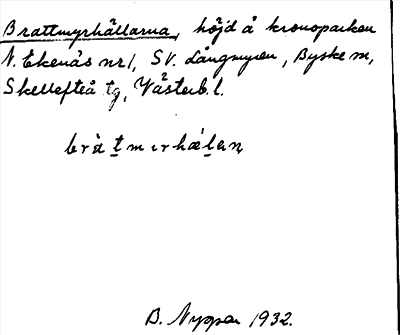 Brattmyrhällarna, höjd å kronoparken
N. Ekenäs nr 1, SV. Långmyren, Byske sn,
Skellefteå tg, Västerb. l.
bràt̲mɩrhæl̲an̥
B. Nyman 1932.